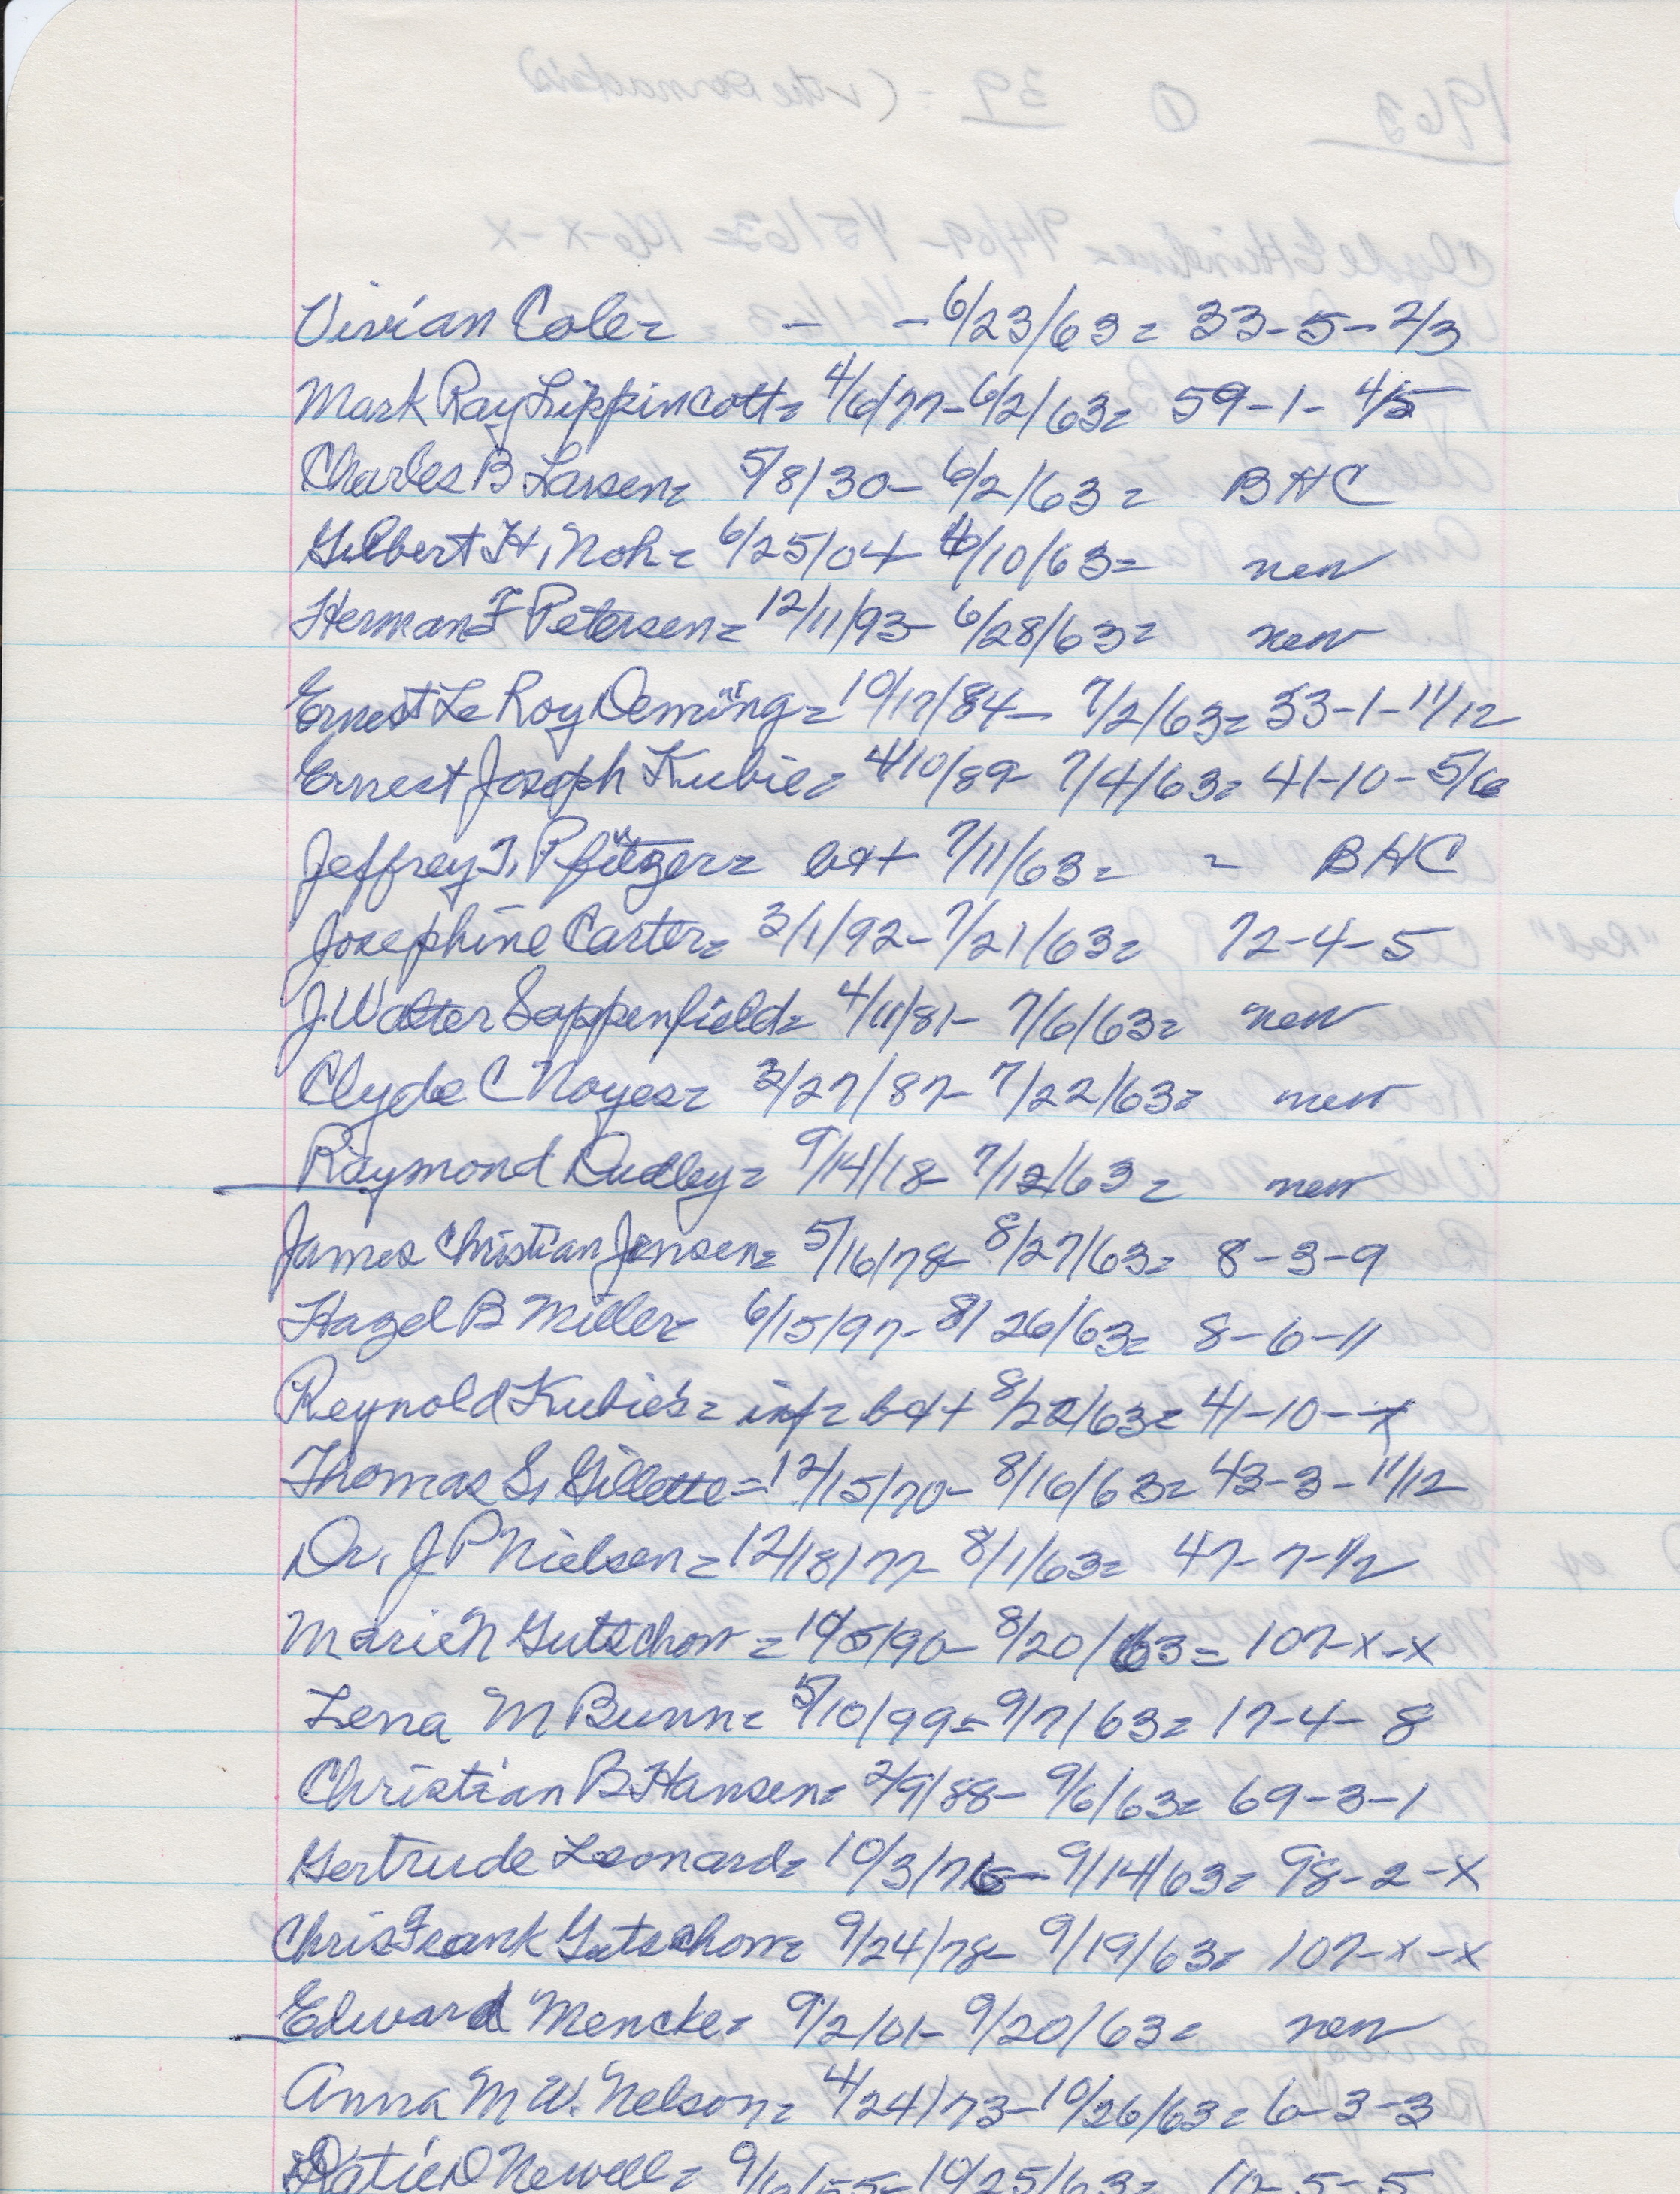 Vivian Cole= - - 6/23/63= 33-5-2/3
Mark Ray Lippincott= 4/6/77-6/2/63= 59-1-4/5
Charles B Larsen= 5/8/30-6/2/63= BHC
Gilbert H. Noh= 6/25/04- 6/10/63= new
Herman F Petersen= 12/11/93- 6/28/63= new
Ernest Le Roy Deming= 10/17/84- 7/2/63= 33-1-11/12
Ernest Joseph Kubie= 4/10/89- 7/4/63= 41-10-5/6
Jeffrey T. Pfitzer= b&+ 7/11/63= - BHC
Josephine Carter= 3/1/92-7/21/63= 72-4-5
J. Walter Sappenfield= 4/11/81- 7/6/63= new
Clyde C Noyes= 3/27/87- 7/22/63= new
Raymond Dudley= 9/14/18- 7/12/63= new
James Christian Jensen= 5/16/78- 8/27/63= 8-3-9
Hazel B Miller= 6/15/97- 8/26/63= 8-6-11
Reynold Kubie's= inf= b&+ 8/22/63= 41-10-x
Thomas S. Gillette= 12/15/70- 8/16/63= 43-3-11/12
Dr. J P Nielsen= 12/18/77- 8/1/63= 47-7-1/2
Marie N Gutschow= 10/5/90- 8/20/63= 107-x-x
Lena M Bunn= 5/10/99=9/7/63= 17-4-8
Christian B. Hansen= 2/9/88- 9/6/63= 69-3-1
Gertrude Leonard= 10/3/76- 9/14/63= 98-2-x
Chris Frank Gutschow= 9/24/78- 9/19/63= 107-x-x
Edward Mencke= 9/2/01- 9/20/63= new
Anna M W. Nelson= 4/24/73-10/26/63= 6-3-3
Katie D Newell= 9/6/55-10/25/63= 10-5-5